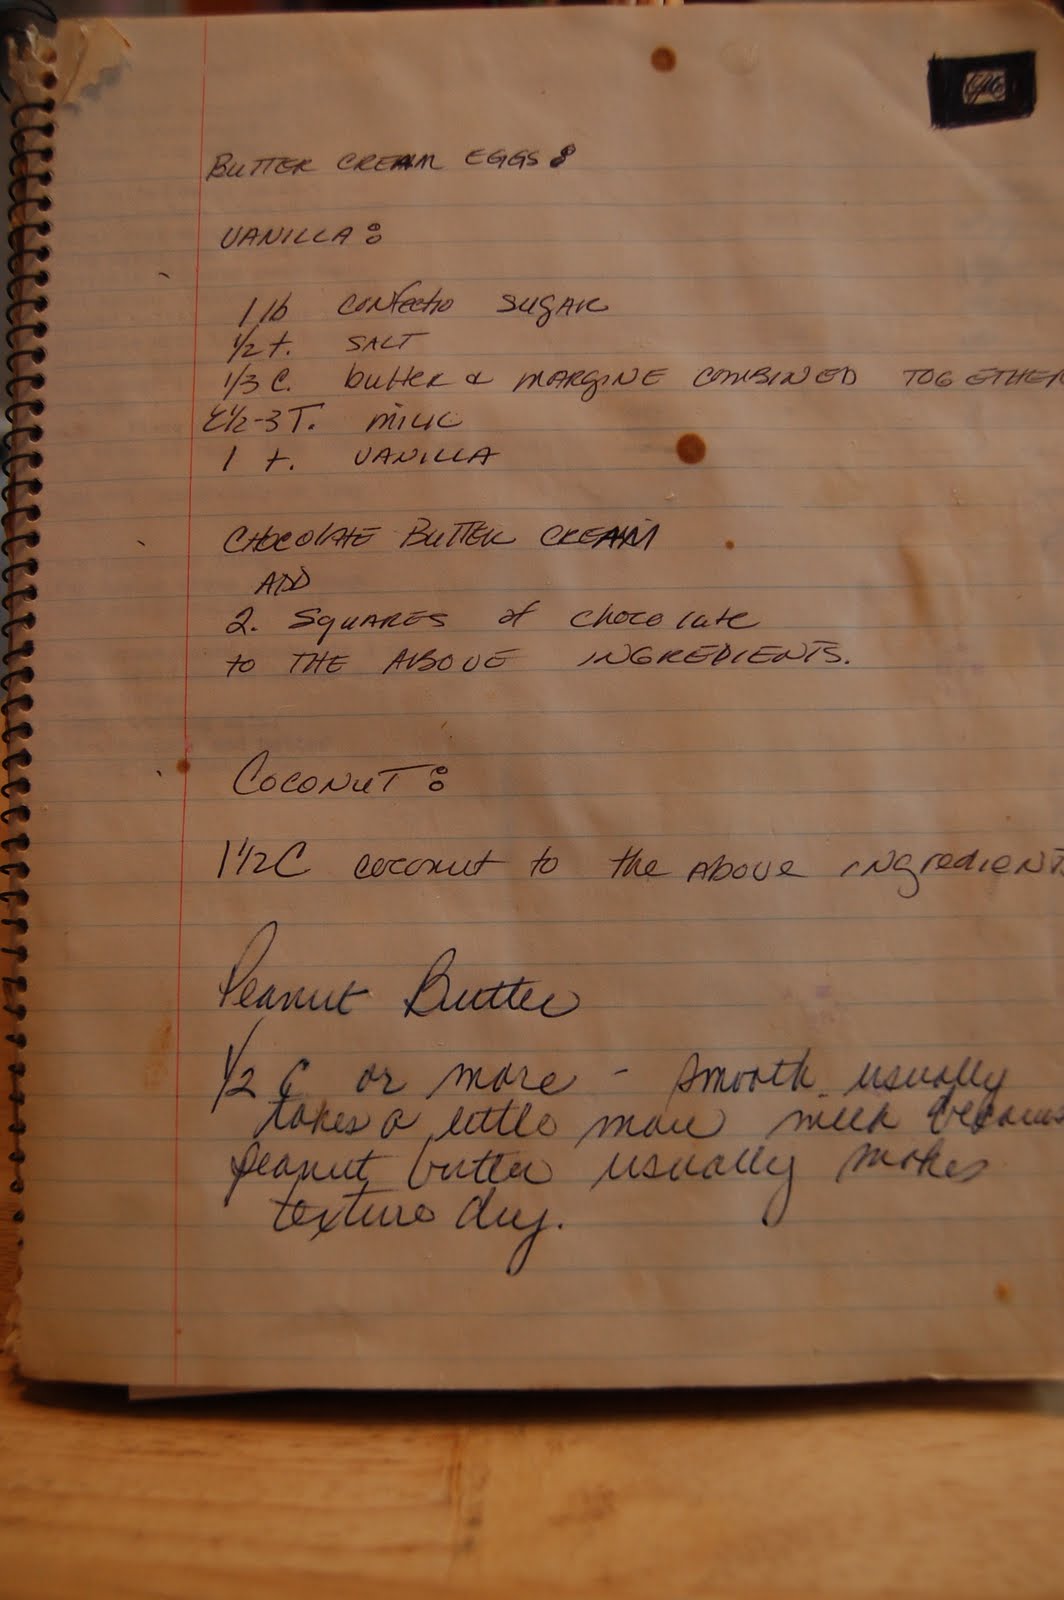 BUTTER CREAM EGGS:
VANILLA:
1 lb confectio SUGAR
1/2 t. SALT
1/3 C. butter & MARGINE COMBINED TOGETHER
2 1/2-3 T. MILK
1 t. VANILLA
CHOCOLATE BUTTER CREAM
ADD
2. SQUARES of chocolate
to THE ABOVE INGREDIENTS.
COCONUT:
1 1/2 C coconut to the ABOVE INgredients
Peanut Butter
1/2 C or more - smooth usually
takes a little more milk because
peanut butter usually makes
texture dry.